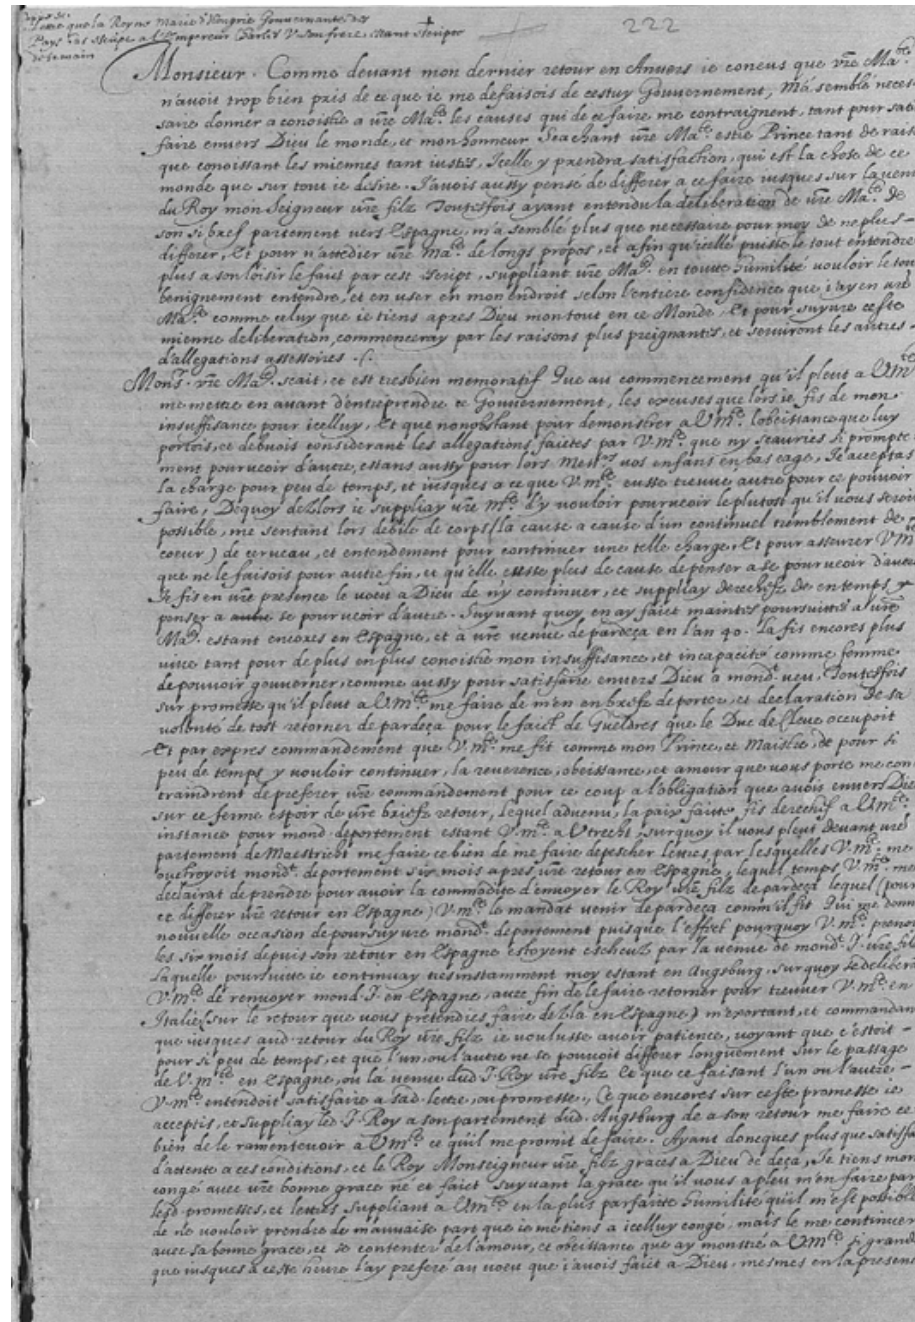 222
Lettre que la Royne Marie d'Hongrie Gouvernante des
Pays bas escript a l'Empereur Charles V son frere, estant
Monsieur. Comme devant mon dernier retour en Anvers ie coneus que vre Ma.te
n'avoit trop bien pris de ce que ie me defaisois de cestuy Gouvernement, M'a semblé neces
saire donner a conoistre a vre Ma.te les causes qui de ce faire me contraignent, tant pour satis
faire envers Dieu le monde, et mon honneur Scachant vre Ma.te estre Prince tant de rais
que conoissant les miennes tant iustes, Icelle y prendra satisfaction, qui est la chose de ce
monde que sur tout ie desire. J'avois aussy pensé de differer a ce faire iusques sur la venu
du Roy mon Seigneur vre filz Toutesfois ayant entendu la deliberation de vre Ma.te de
son si bref partement vers Espagne, m'a semblé plus que necessaire pour moy de ne plus
differer, Et pour n'attedier vre Ma.te de longs propos, et afin qu'icelle puisse le tout entendre
plus a son loisir le faict par cest escript, Suppliant vre Ma.te en toutte humilité vouloir le tout
benignement entendre, et en user en mon endroit selon l'entiere confidence que i'ay en vre
Ma.te comme celuy que ie tiens apres Dieu mon tout en ce Monde, Et pour suyvre ceste
mienne deliberation, commenceray par les raisons plus preignantes, et serviront les autres
d'allegations assessoires.
Mons.r vre Ma.te scait, et est tresbien memoratif Que au commencement qu'il pleut a V.M.te
me mettre en avant d'entreprendre ce Gouvernement, les excuses que lors ie fis de mon
insuffisance pour icelluy, Et que nonobstant pour demonstrer a V.M.te l'obeissance que luy
portois, et debvois considerant les allegations faictes par V.M.te que ny scauries si prompte
ment pourveoir d'autre, estans aussy pour lors Mess.rs vos enfans en bas eage, Je acceptas
la charge pour peu de temps, et iusques a ce que V.M.te eusse treuvé autre pour ce pouvoir
faire, Dequoy dezlors ie suppliay vre M.te d'y vouloir pourveoir le plutost qu'il vous seroit
possible, me sentant lors debile de corps (la cause a cause d'un continuel tremblement de
coeur) de cerveau, et entendement pour continuer une telle charge, Et pour asseurer V.M.te
que ne le faisois pour autre fin, et qu'elle eusse plus de cause de penser a se pourveoir d'autre
Je fis en vre presence le voeu a Dieu de ny continuer, et suppliay derechef de en temps
penser a se pourveoir d'autre. Suyvant quoy en ay faict maintes poursuittes a vre
Ma.te estant encores en Espagne, et à vre venue de pardeça en l'an 40. La fis encores plus
vive tant pour de plus en plus conoistre mon insuffisance, et incapacité comme femme
de pouvoir gouverner, comme aussy pour satisfaire envers Dieu a mond.t veu, Toutesfois
sur promesse qu'il pleut a V.M.te me faire de m'en en brefz deporter, et declaration de sa
volonté de tost retorner de pardeça pour le faict de Gueldres que le Duc de Cleve occupoit
Et par expres commandement que V.M.te me fit comme mon Prince, et Maistre, de pour si
peu de temps y vouloir continuer, la reverence, obeissance, et amour que vous porte me con
traindrent de preferer vre commandement pour ce coup a l'obligation que avois envers Dieu
sur ce ferme espoir de vre briefz retour, Lequel advenu, la paix faite fis derechef a V.M.te
instance pour mond. departement estant V.M.te a Utrecht, surquoy il vous pleut devant vre
partement de Maestricht me faire ce bien de me faire depescher lettres par lesquelles V.M.te me
ouctroyoit mond.t departement six mois apres vre retour en Espagne, lequel temps V.M.te me
declairat de prendre pour avoir la commodité d'envoyer le Roy vre filz de pardeça lequel (pour
ce differer vre retour en Espagne) V.M.te le mandat venir de pardeça comm'il fit Qui me donna
nouvelle occasion de poursuyvre mond.t departement puisque l'effect pourquoy V.M.te prenoit
les six mois depuis son retour en Espagne estoyent escheuz par la venue de mond.t S.r vre filz
Laquelle poursuite ie continuay tresinstamment moy estant en Augsburg, surquoy se delibera
V.M.te de renvoyer mond. S.r en Espagne, avec fin de le faire retorner pour treuver V.M.te en
Italie (sur le retour que vous pretendies faire de la en Espagne) m'exortant, et commandant
que iusques aud. retour du Roy vre filz ie voulusse avoir patience, voyant que c'estoit
pour si peu de temps, et que l'un, ou l'autre ne se pouvoit differer longuement sur le passage
de V.M.te en Espagne, ou la venue dud S.r Roy vre filz Ce que ce faisant l'un ou l'autre
V.M.te entendoit satisfaire a sad. lettre, ou promesse, Ce que encores sur ceste promesse ie
acceptis, et suppliay led S.r Roy a son partement dud. Augsburg de a son retour me faire ce
bien de le ramentevoir à V.M.te ce qu'il me promit de faire. Ayant doncques plus que satisfa
d'attente a ces conditions, et le Roy Monseigneur vre filz graces a Dieu de deça, Je tiens mon
congé avec vre bonne grace né et faict Suyvant la grace qu'il vous a pleu m'en faire par
lesd. promesses, et lettres Suppliant a V.M.te en la plus parfaite humilité qu'il m'est possible
de ne vouloir prendre de mauvaise part que ie me tiens a icelluy congé, mais le me continuer
avec sa bonne grace, et se contenter de l'amour, et obeissance que ay monstré a V.M.te si grande
que iusques a ceste heure l'ay preferé au voeu que i'avois faict a Dieu, mesmes en la presen